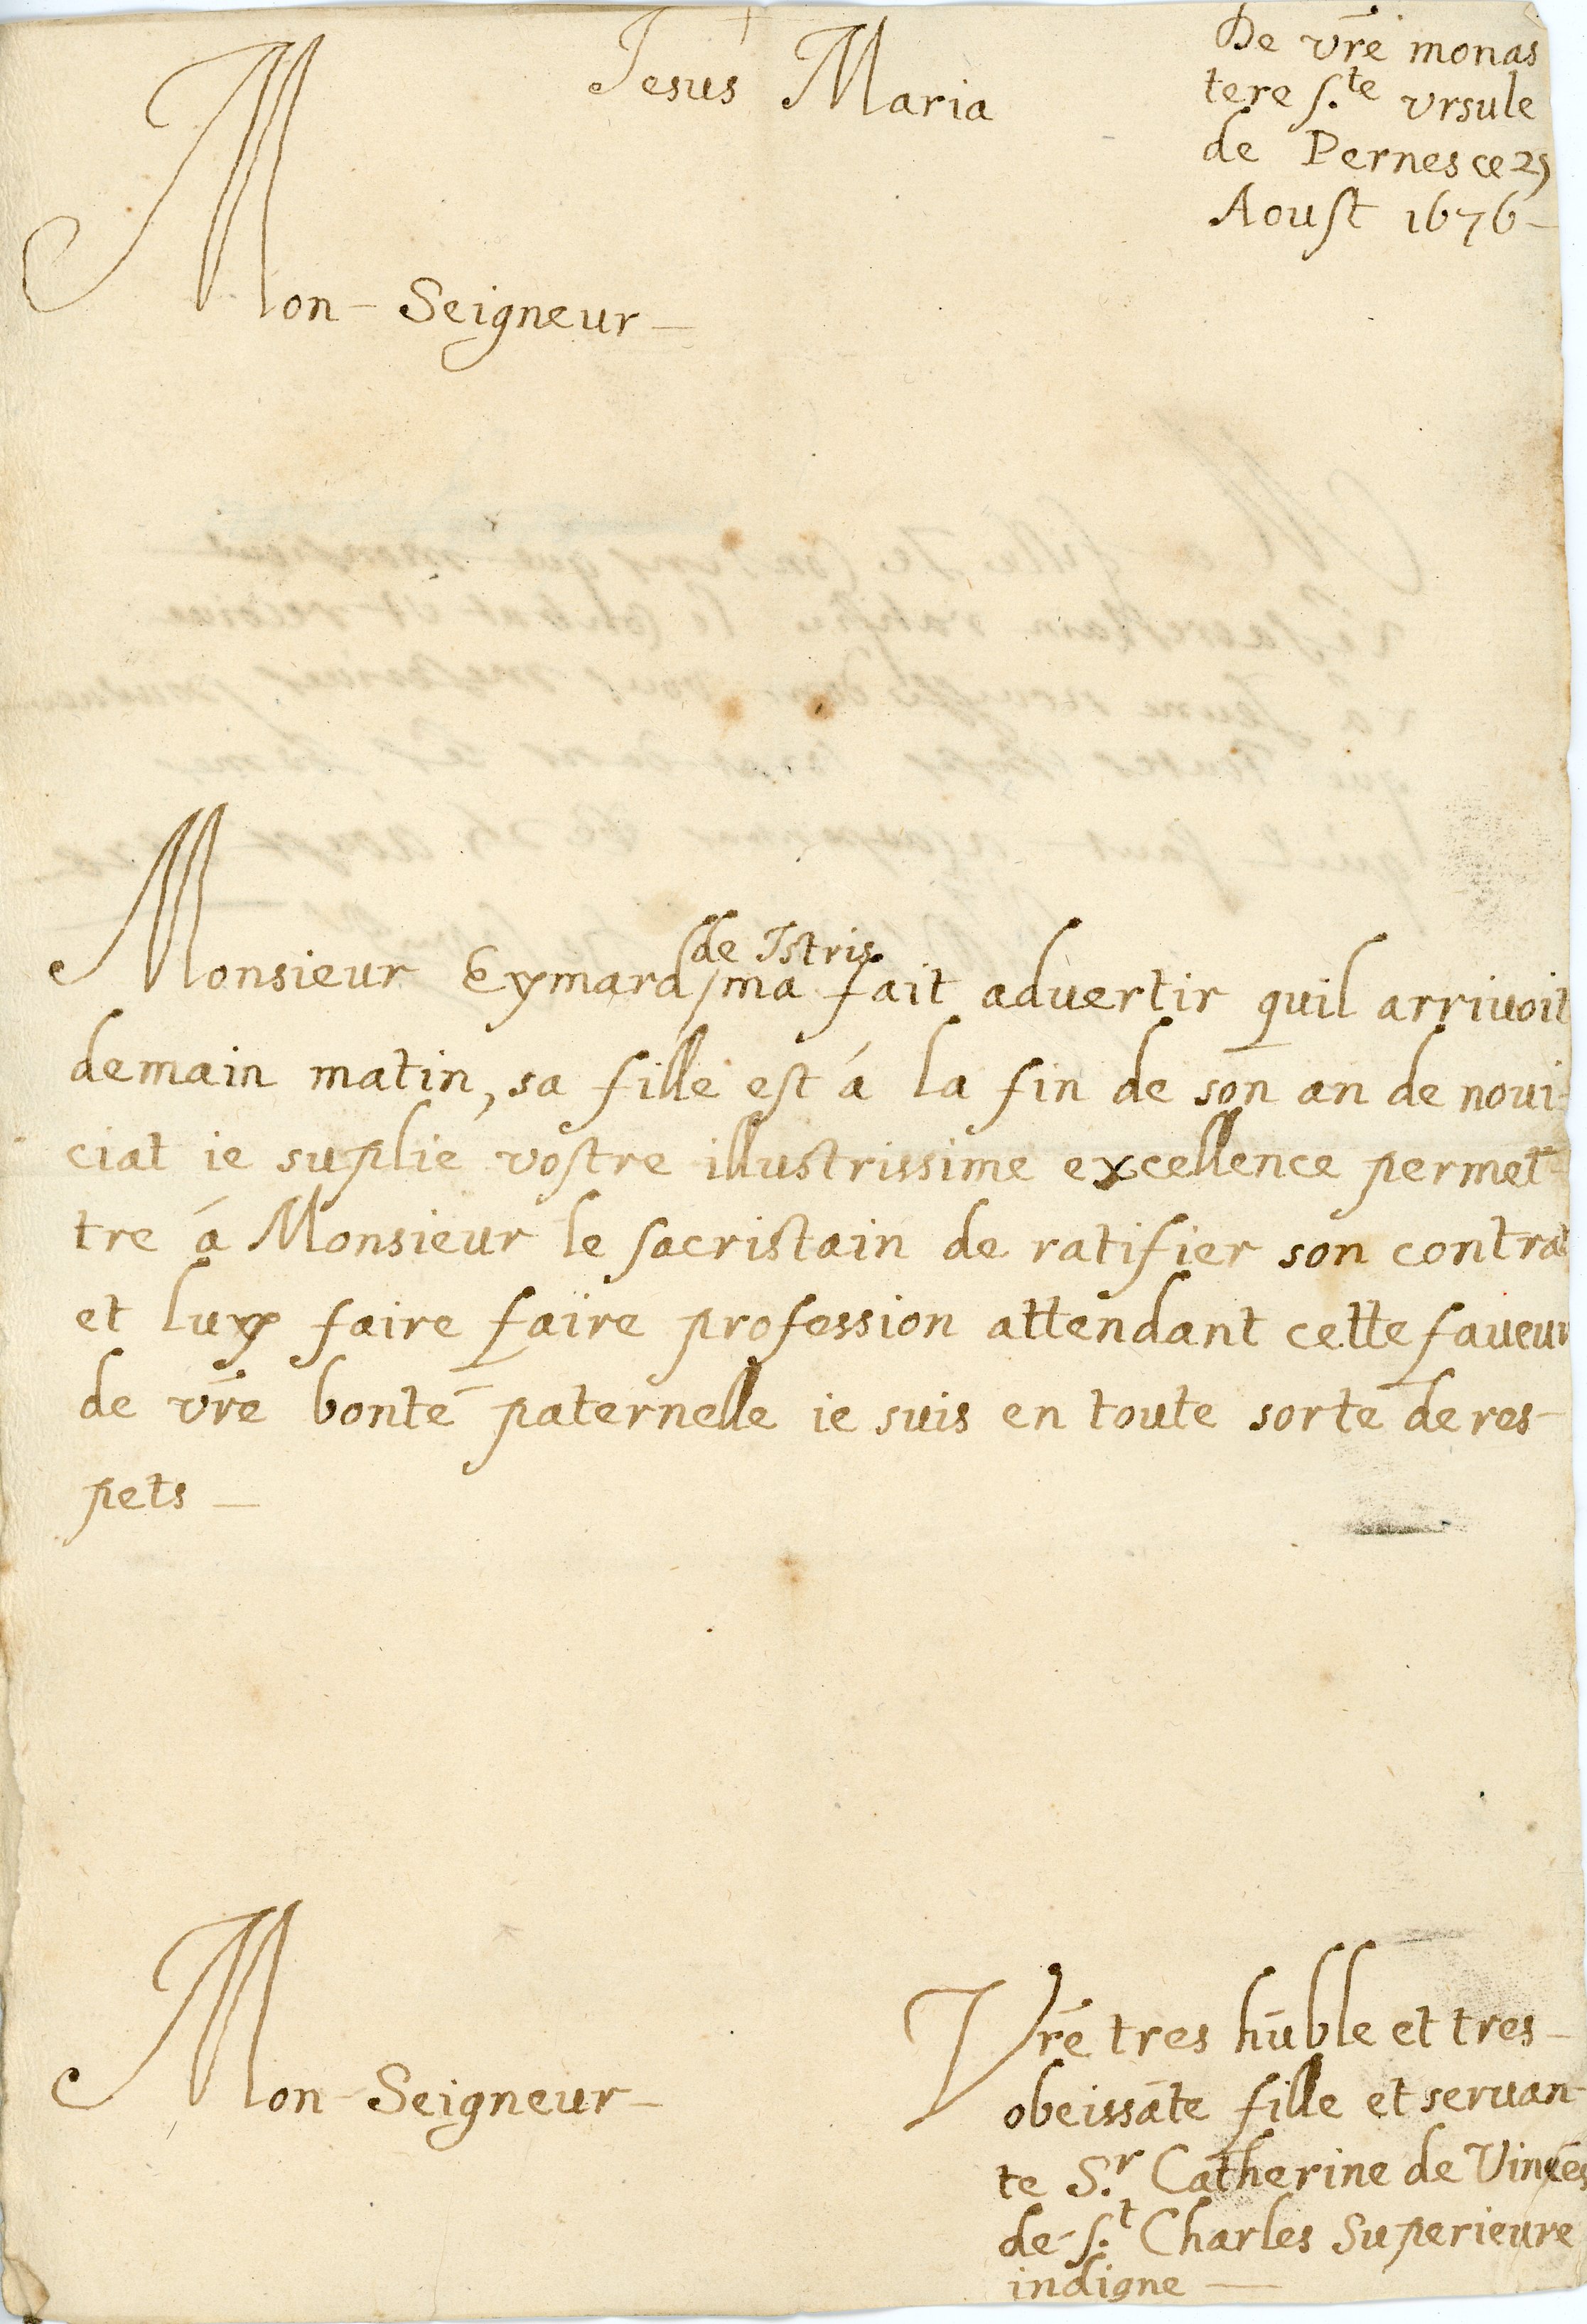 Jesus Maria
De vr̄e monas
tere s.te vrsule
de Pernes ce 25
Aoust 1676 -
Mon - Seigneur -
de Istris
Monsieur Eymard / ma fait advertir quil arrivoit
demain matin, sa fille est á la fin de son an de noui-
ciat ie suplie vostre illustrissime excellence permet-
tre á Monsieur le sacristain de ratifier son contrat
et luy faire faire profession attendant cette faveur
de vr̄e bonté paternelle ie suis en toute sorte de res-
pets -
Mon - Seigneur -
Vr̄e tres hūble et tres -
obeissāte fille et seruan-
te S.r Catherine de
de - s.t Charles Superieure
indigne -